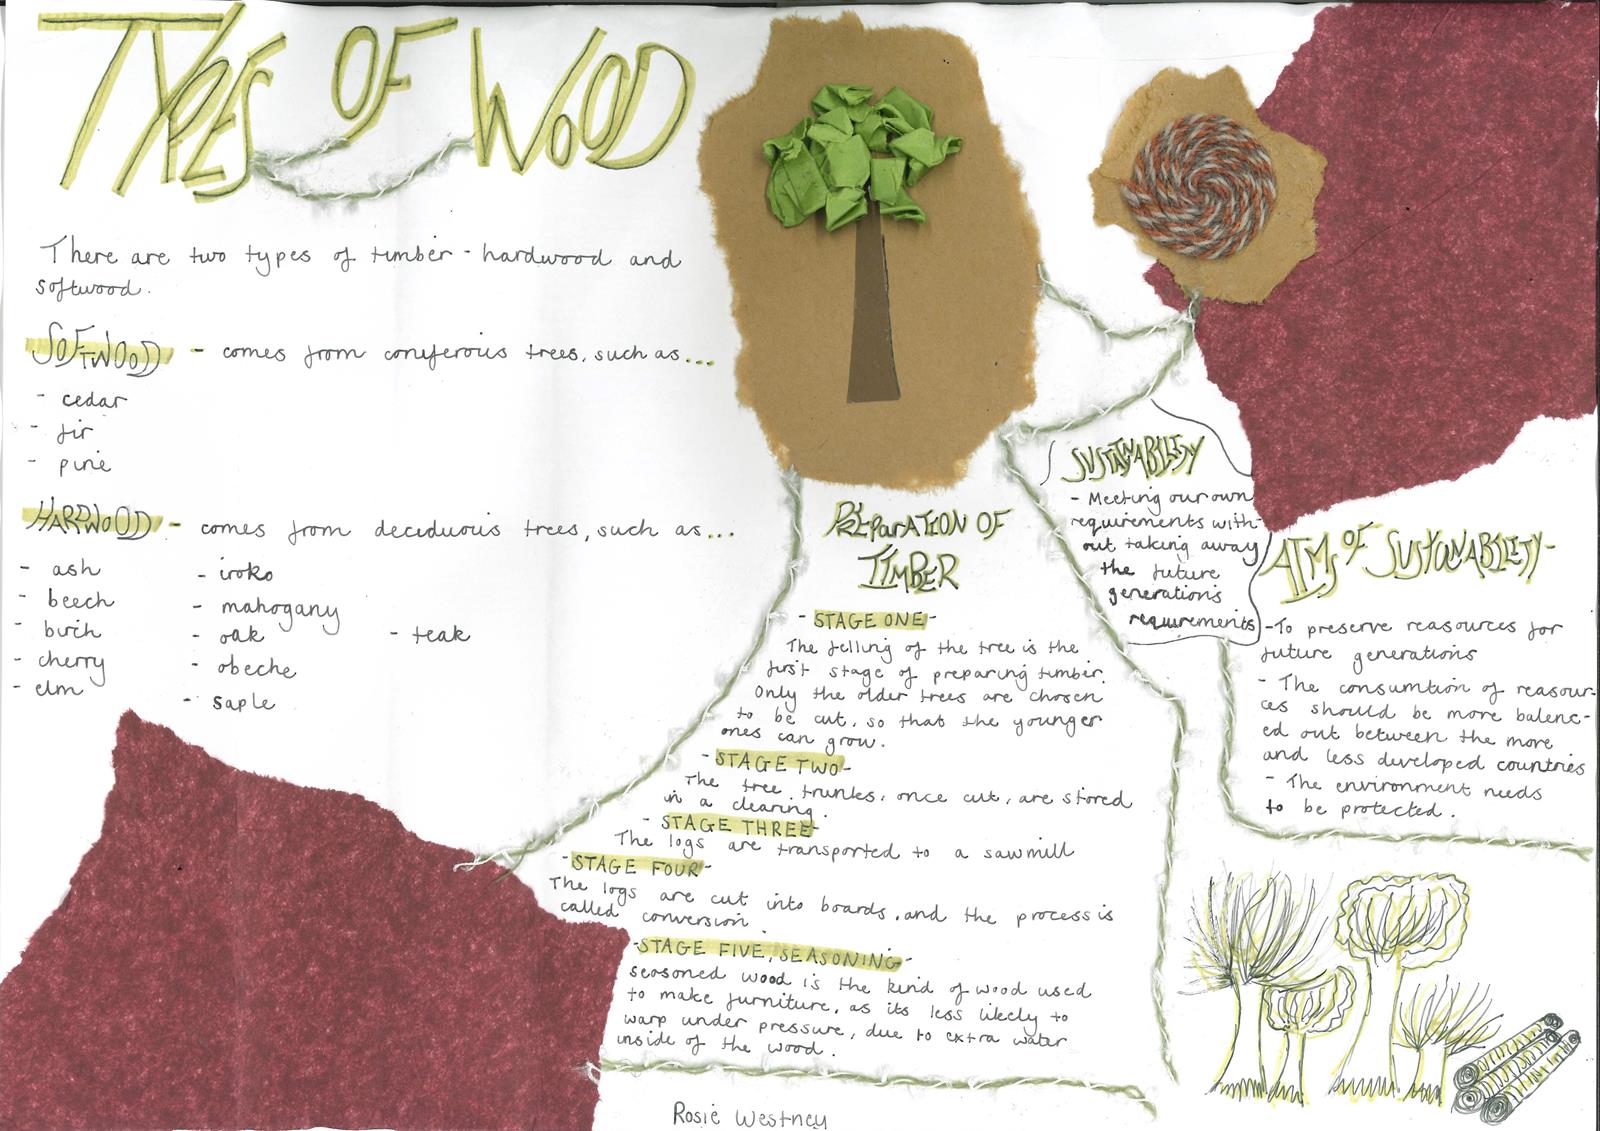 TYPES OF WOOD
There are two types of timber - hardwood and
softwood.
SOFTWOOD - comes from coniferous trees, such as...
- cedar
- fir
- pine
HARDWOOD - comes from deciduous trees, such as...
- ash
- beech
- birch
- cherry
- elm
- iroko
- mahogany
- oak
- obeche
- saple
- teak
PREPARATION OF
TIMBER
- STAGE ONE -
The felling of the tree is the
first stage of preparing timber.
Only the older trees are chosen
to be cut, so that the younger
ones can grow.
- STAGE TWO -
The tree trunks, once cut, are stored
in a clearing.
- STAGE THREE -
The logs are transported to a sawmill
- STAGE FOUR -
The logs are cut into boards, and the process is
called conversion.
- STAGE FIVE, SEASONING -
seasoned wood is the kind of wood used
to make furniture, as its less likely to
warp under pressure, due to extra water
inside of the wood.
SUSTAINABILITY
- Meeting our own
requirements with-
out taking away
the future
generations
requirements
AIMS OF SUSTONABILITY -
- To preserve reasources for
future generations
- The consumtion of reasour-
ces should be more balenc-
ed out between the more
and less developed countries
- The environment needs
to be protected.
Rosie Westney